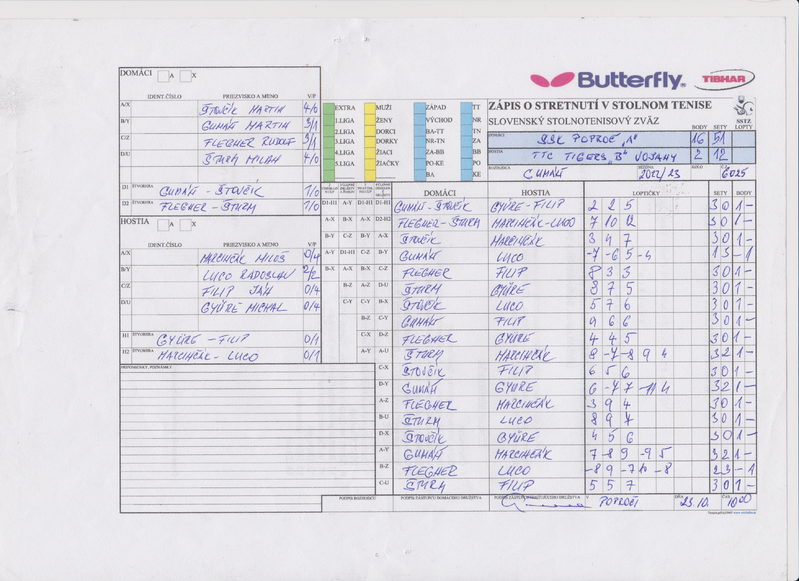 Butterfly® TIBHAR
DOMÁCI A X
IDENT.ČÍSLO PRIEZVISKO A MENO V/P
A/X ŠTOVČÍK MARTIN 4/0
B/Y GUMÁŇ MARTIN 3/1
C/Z FLEGNER RUDOLF 3/1
D/U ŠTURM MILAN 4/0
D1 ŠTVORHRA GUMÁŇ - ŠTOVČÍK 1/0
D2 ŠTVORHRA FLEGNER - ŠTURM 1/0
HOSTIA A X
IDENT.ČÍSLO PRIEZVISKO A MENO V/P
A/X MARCINČÁK MILOŠ 0/4
B/Y LUCO RADOSLAV 2/2
C/Z FILIP JÁN 0/4
D/U GYÜRE MICHAL 0/4
H1 ŠTVORHRA GYÜRE - FILIP 0/1
H2 ŠTVORHRA MARCINČÁK - LUCO 0/1
PRIPOMIENKY, POZNÁMKY
EXTRA MUŽI ZÁPAD TT
1.LIGA ŽENY VÝCHOD NR
2.LIGA DORCI BA-TT TN
3.LIGA DORKY NR-TN ZA
4.LIGA ŽIACI ZA-BB BB
5.LIGA ŽIAČKY PO-KE PO
BA KE
ZÁPIS O STRETNUTÍ V STOLNOM TENISE
SLOVENSKÝ STOLNOTENISOVÝ ZVÄZ SSTZ
BODY SETY LOPTY
DOMÁCI SSK POPROČ "A" 16 51
HOSTIA TTC TIGERS "B" VOJANY 2 12
ROZHODCA GUMÁŇ 2022/23 6025
DOMÁCI HOSTIA LOPTIČKY SETY BODY
D1-H1 A-Y D1-H1 D1-H1 GUMÁŇ - ŠTOVČÍK GYÜRE - FILIP 2 2 5 3 0 1 -
A-X B-X A-X D2-H2 FLEGNER - ŠTURM MARCINČÁK - LUCO 7 10 12 3 0 1 -
B-Y C-Z B-Y A-X ŠTOVČÍK MARCINČÁK 3 4 7 3 0 1 -
A-Y D1-H1 C-Z B-Y GUMÁŇ LUCO -7 -6 5 -4 1 3 - 1
B-X A-X B-X C-Z FLEGNER FILIP 8 3 3 3 0 1 -
B-Z A-Z D-U ŠTURM GYÜRE 8 7 5 3 0 1 -
C-Y C-Y B-X ŠTOVČÍK LUCO 5 7 6 3 0 1 -
B-Z C-Y GUMÁŇ FILIP 9 6 6 3 0 1 -
C-X D-Z FLEGNER GYÜRE 4 4 5 3 0 1 -
A-Y A-U ŠTURM MARCINČÁK 8 -7 -8 9 4 3 2 1 -
C-X ŠTOVČÍK FILIP 6 5 6 3 0 1 -
D-Y GUMÁŇ GYÜRE 6 -7 7 -11 4 3 2 1 -
A-Z FLEGNER MARCINČÁK 3 9 4 3 0 1 -
B-U ŠTURM LUCO 8 9 7 3 0 1 -
D-X ŠTOVČÍK GYÜRE 4 5 6 3 0 1 -
A-Y GUMÁŇ MARCINČÁK 7 -8 9 -9 5 3 2 1 -
B-Z FLEGNER LUCO -8 9 -7 10 -8 2 3 - 1
C-U ŠTURM FILIP 5 5 7 3 0 1 -
PODPIS ROZHODCU PODPIS ZÁSTUPCU DOMÁCEHO DRUŽSTVA V POPROČI DŇA 23.10. ČAS 10 00